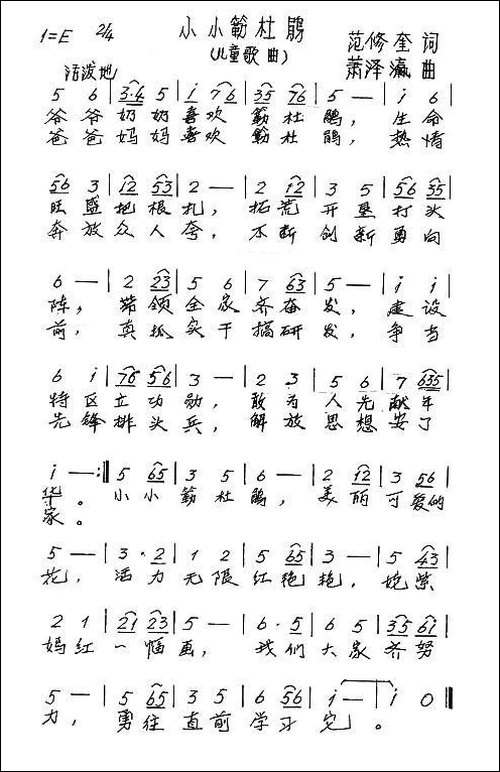 1=E 2/4 小小簕杜鹃
(儿童歌曲) 范修奎 词
活泼地 萧泽瀛 曲
5 6 | 3·4 5 | i 76 | 35 76 | 5 — | i 6 |
爷爷奶奶喜欢簕杜鹃，生命
爸爸妈妈喜欢簕杜鹃，热情
56 3 | 12 53 | 2 — | 2 12 | 3 5 | 56 35 |
旺盛把根扎，拓荒开垦打头
奔放众人夸，不断创新勇向
6 — | 2 23 | 5 6 | 7 63 | 5 — | i i |
阵，带领全家齐奋发，建设
前，真抓实干搞研发，争当
6 i | 76 56 | 3 — | 2 3 | 5 6 | 7 635 |
特区立功勋，敢为人先献年
先锋排头兵，解放思想安了
i — :‖ 5 65 | 3 5 | 6 — | 2 12 | 3 56 |
华。小小簕杜鹃，美丽可爱的
家。
5 — | 3·2 | 1 2 | 5 65 | 3 — | 5 43 |
花，活力无限红艳艳，姹紫
2 1 | 21 23 | 5 — | 6·5 | 6 5 | 35 61 |
嫣红一幅画，我们大家齐努
5 — | 5 65 | 3 5 | 6 56 | i — | i 0 ‖
力，勇往直前学习它。